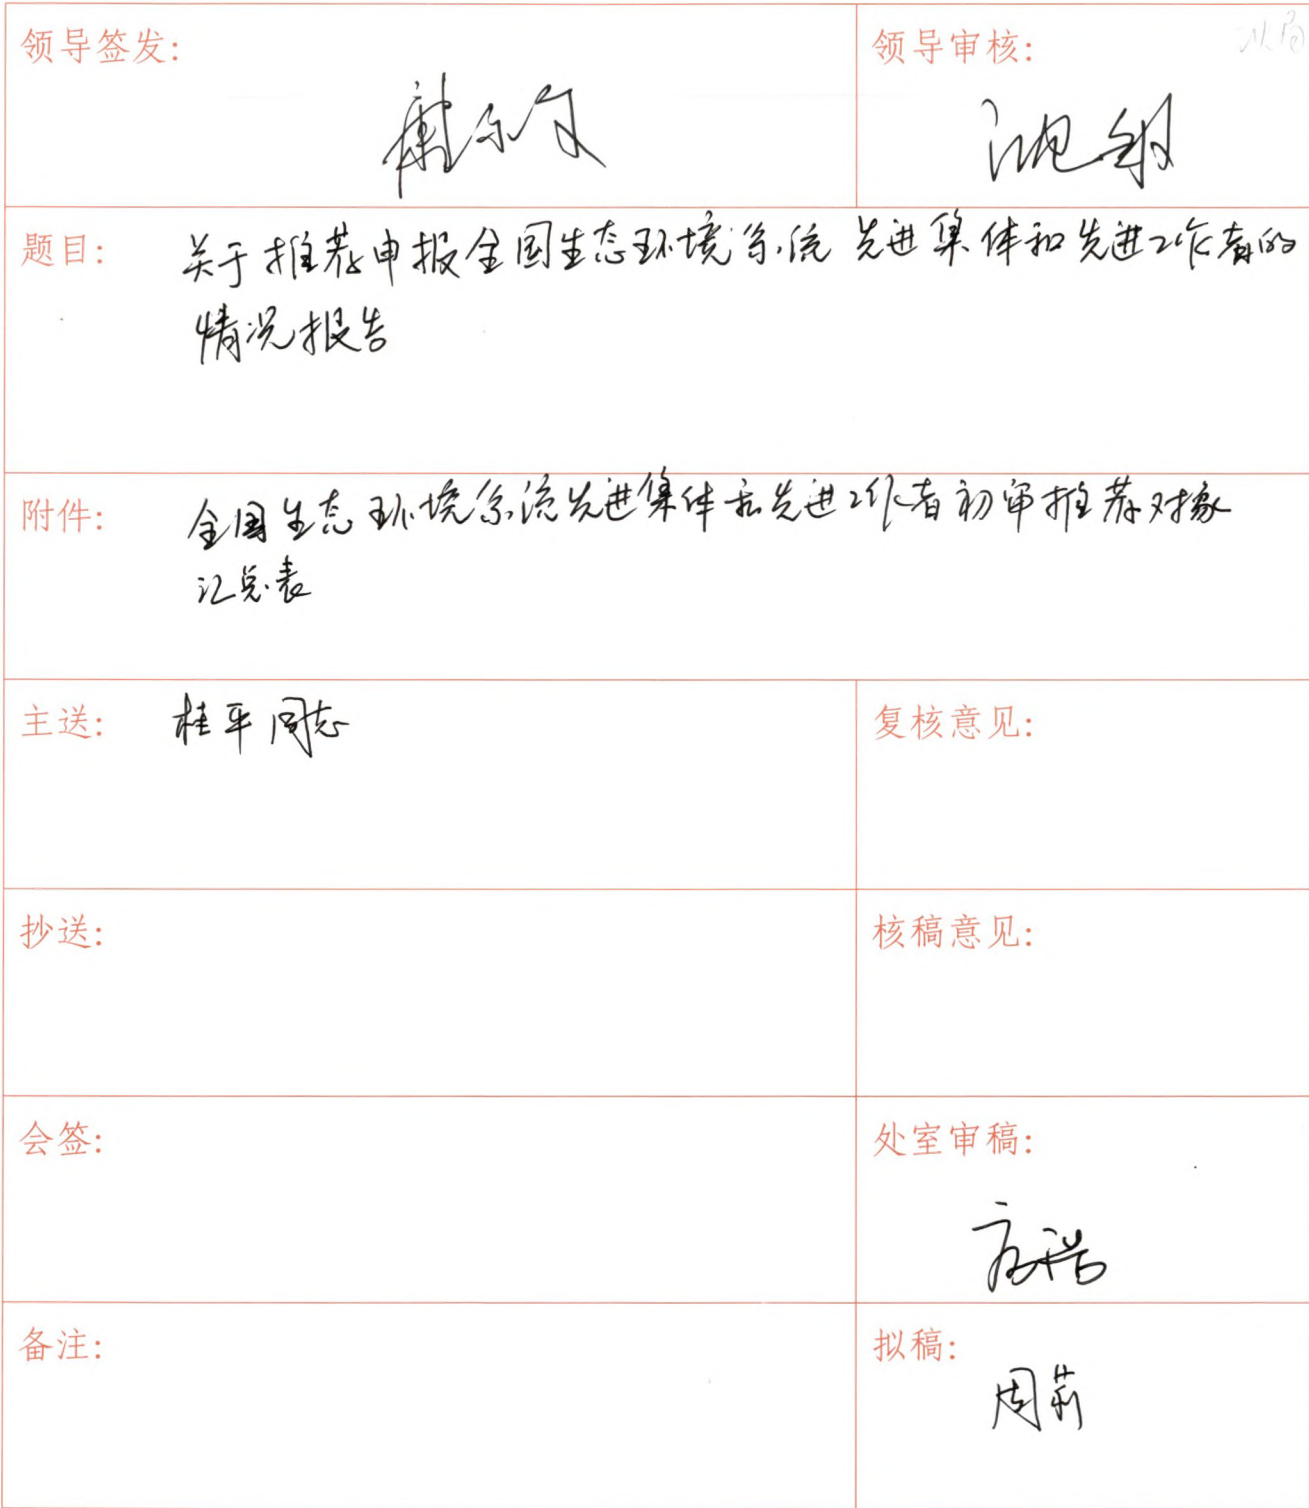 领导签发:
领导审核:
沈
题目: 关于推荐申报全国生态环境系统先进集体和先进工作者的
情况报告
附件: 全国生态环境系统先进集体和先进工作者初审推荐对象
汇总表
主送: 桂平同志
复核意见:
抄送:
核稿意见:
会签:
处室审稿:
备注:
拟稿:
周莉